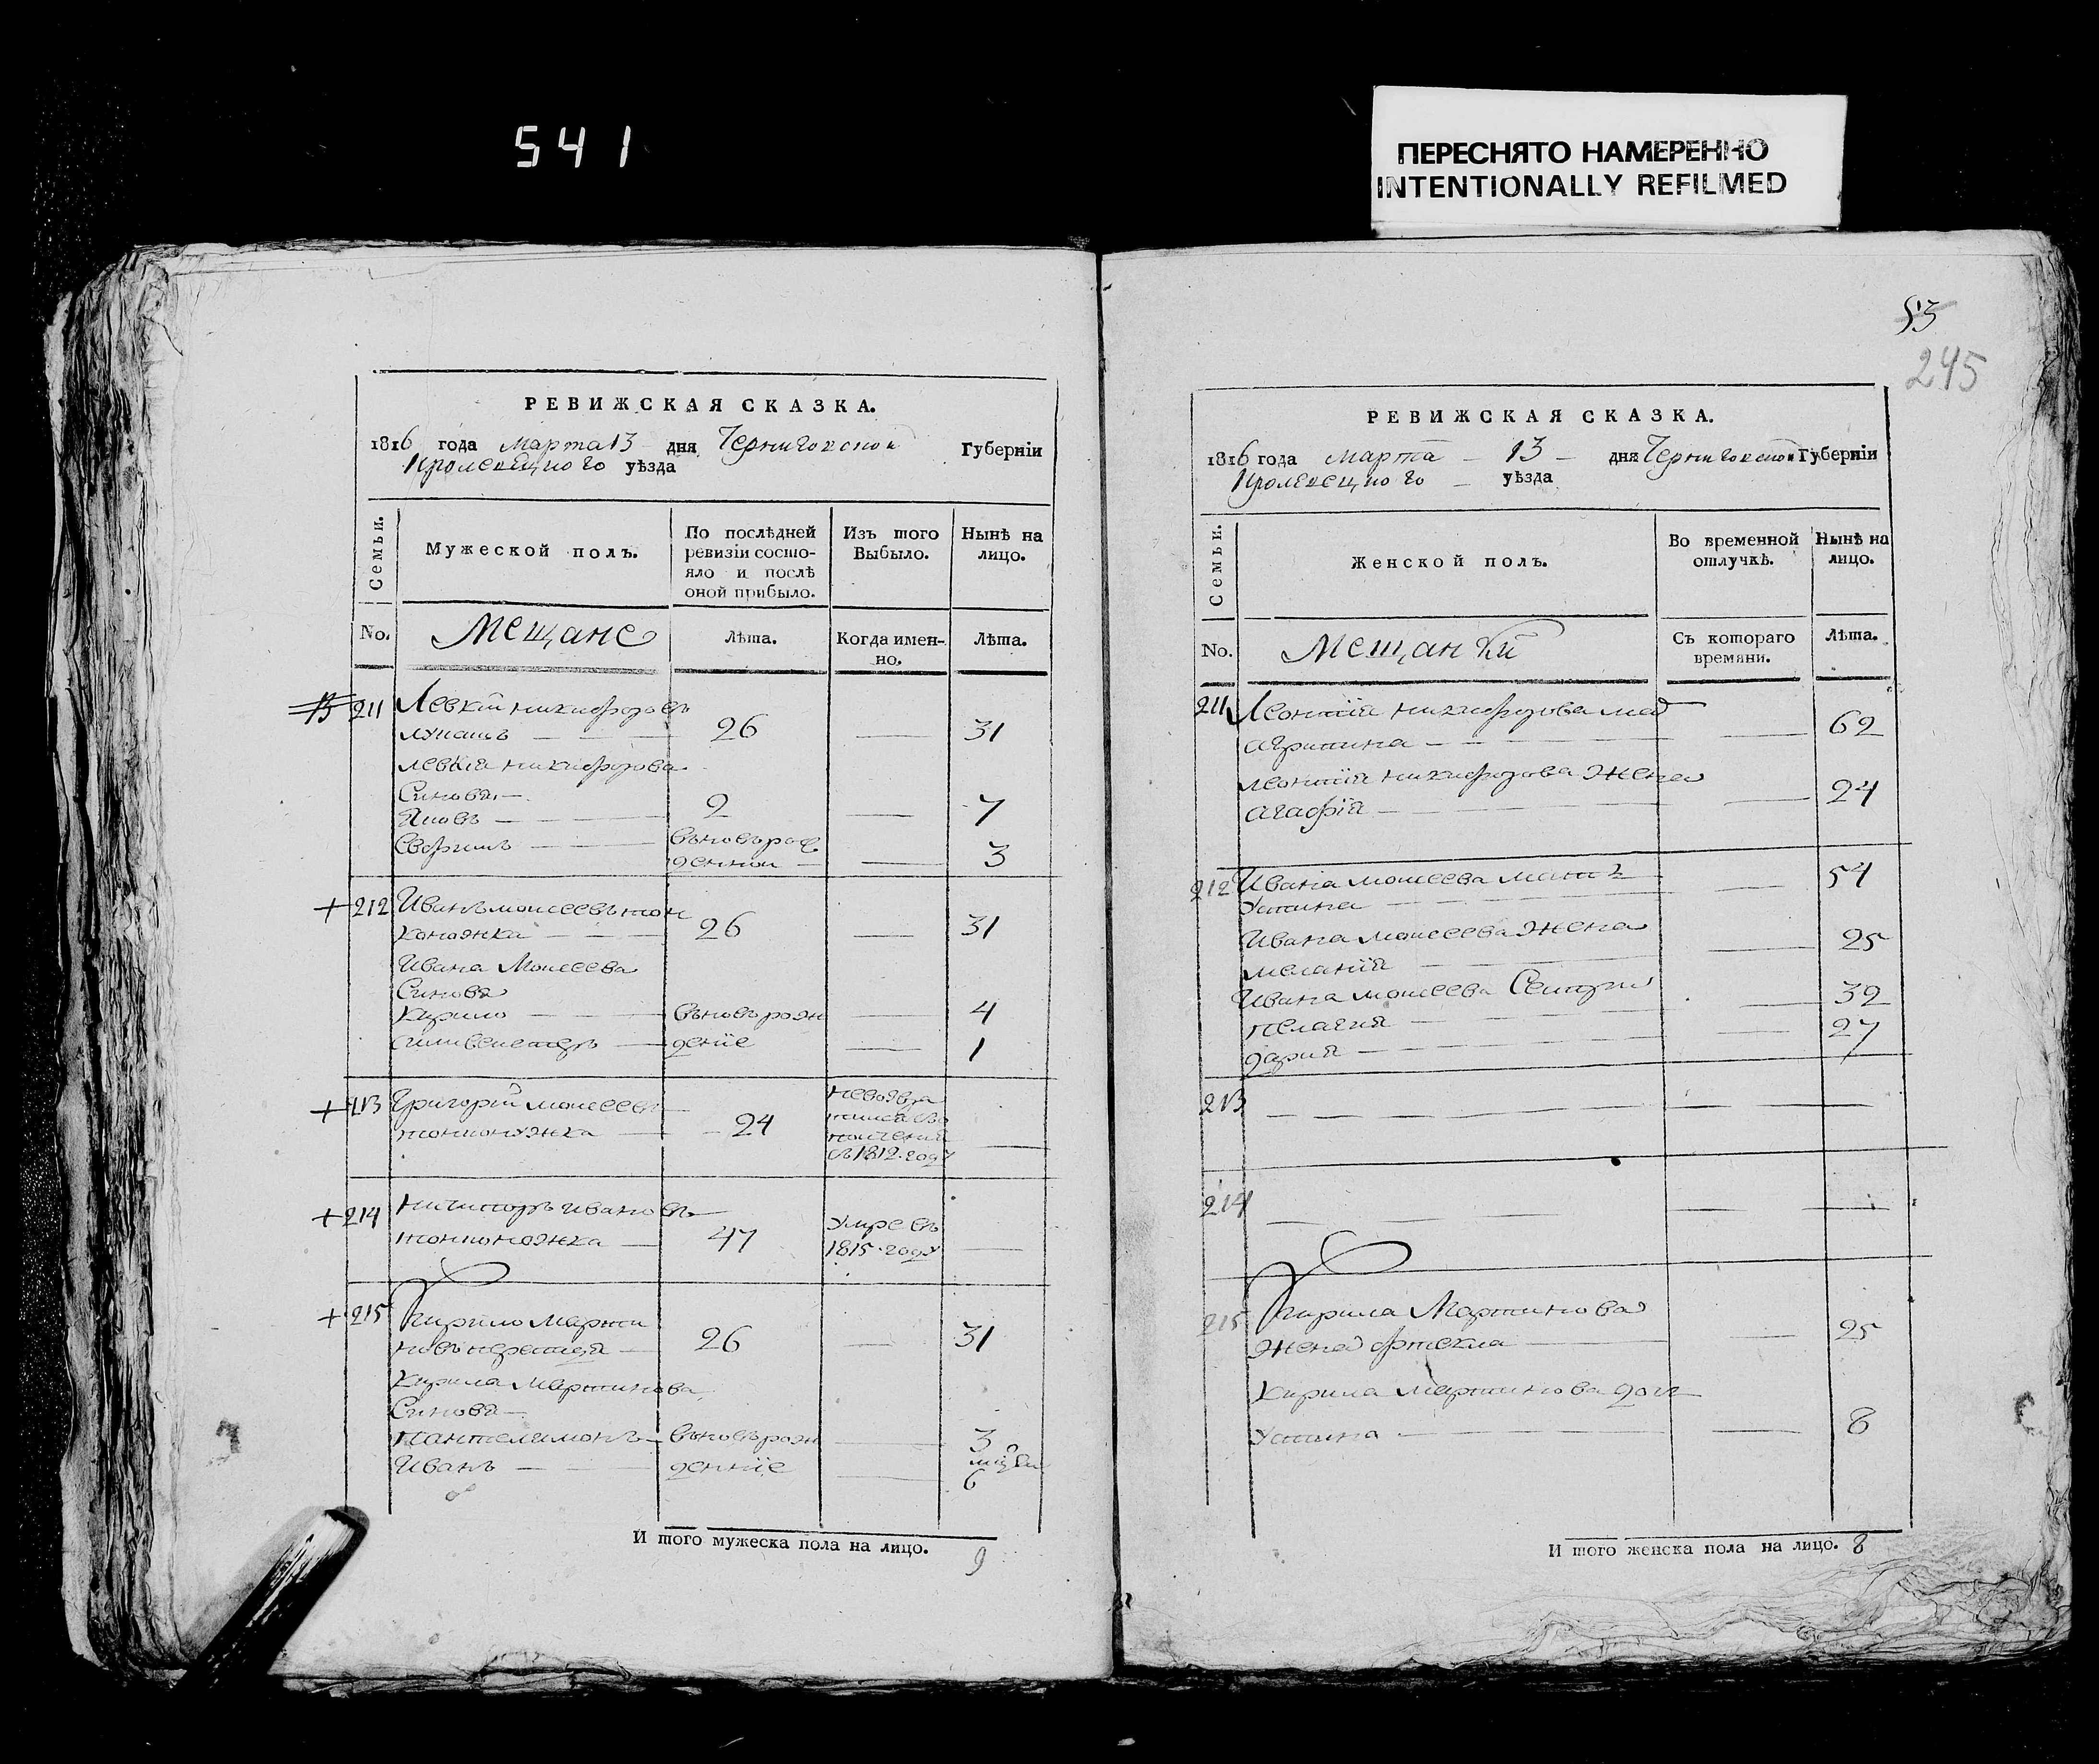 541
ПЕРЕСНЯТО НАМЕРЕННО
INTENTIONALLY REFILMED
РЕВИЖСКАЯ СКАЗКА.
1816 года Марта 13 дня Черниговской Губерніи
Кролевецкого уѣзда
Семьи.
Мужеской полъ.
По послѣдней ревизіи состо-
яло и послѣ оной прибыло.
Изъ того Выбыло.
Нынѣ на лицо.
No.
Мещане
Лѣта.
Когда имен-
но.
Лѣта.
211 Левкій никифоровъ
26 31
левкія никифорова
Синовя
Яковъ 2 7
вновь рож
денной 3
+ 212 Иванъ моисеевъ тон
коножка 26 31
Ивана Моисеева
Синовя
Кирило вновь рож 4
силивестеръ деніе 1
+ 213 Григорій моисеевъ
тонконожка 24
в 1812 году
+ 214 Никифоръ ивановъ
тонконожка 47
Умре въ
1815 году
+ 215 Кирило Марти
новъ 26 31
Кирила Мартинова
Синовя
пантелимонъ вновь рож 3
Иванъ денніе 6
И того мужеска пола на лицо. 9
53
245
РЕВИЖСКАЯ СКАЗКА.
1816 года Марта 13 дня Черниговской Губерніи
Кролевецкого уѣзда
Семьи.
Женской полъ.
Во временной отлучкѣ.
Нынѣ на лицо.
No.
Мещанки
Съ котораго времяни.
Лѣта.
211 Леонтія никифорова мат
агрипина 62
леонтія никифорова жена
агафія 24
212 Ивана моисеева мать
Устина 54
Ивана моисеева жена
меланія 25
Ивана моисеева Сестри
пелагия 32
дария 27
213
214
215 Кирила Мартинова
жена фтекла 25
Кирила Мартинова доч
Устина 8
И того женска пола на лицо. 8